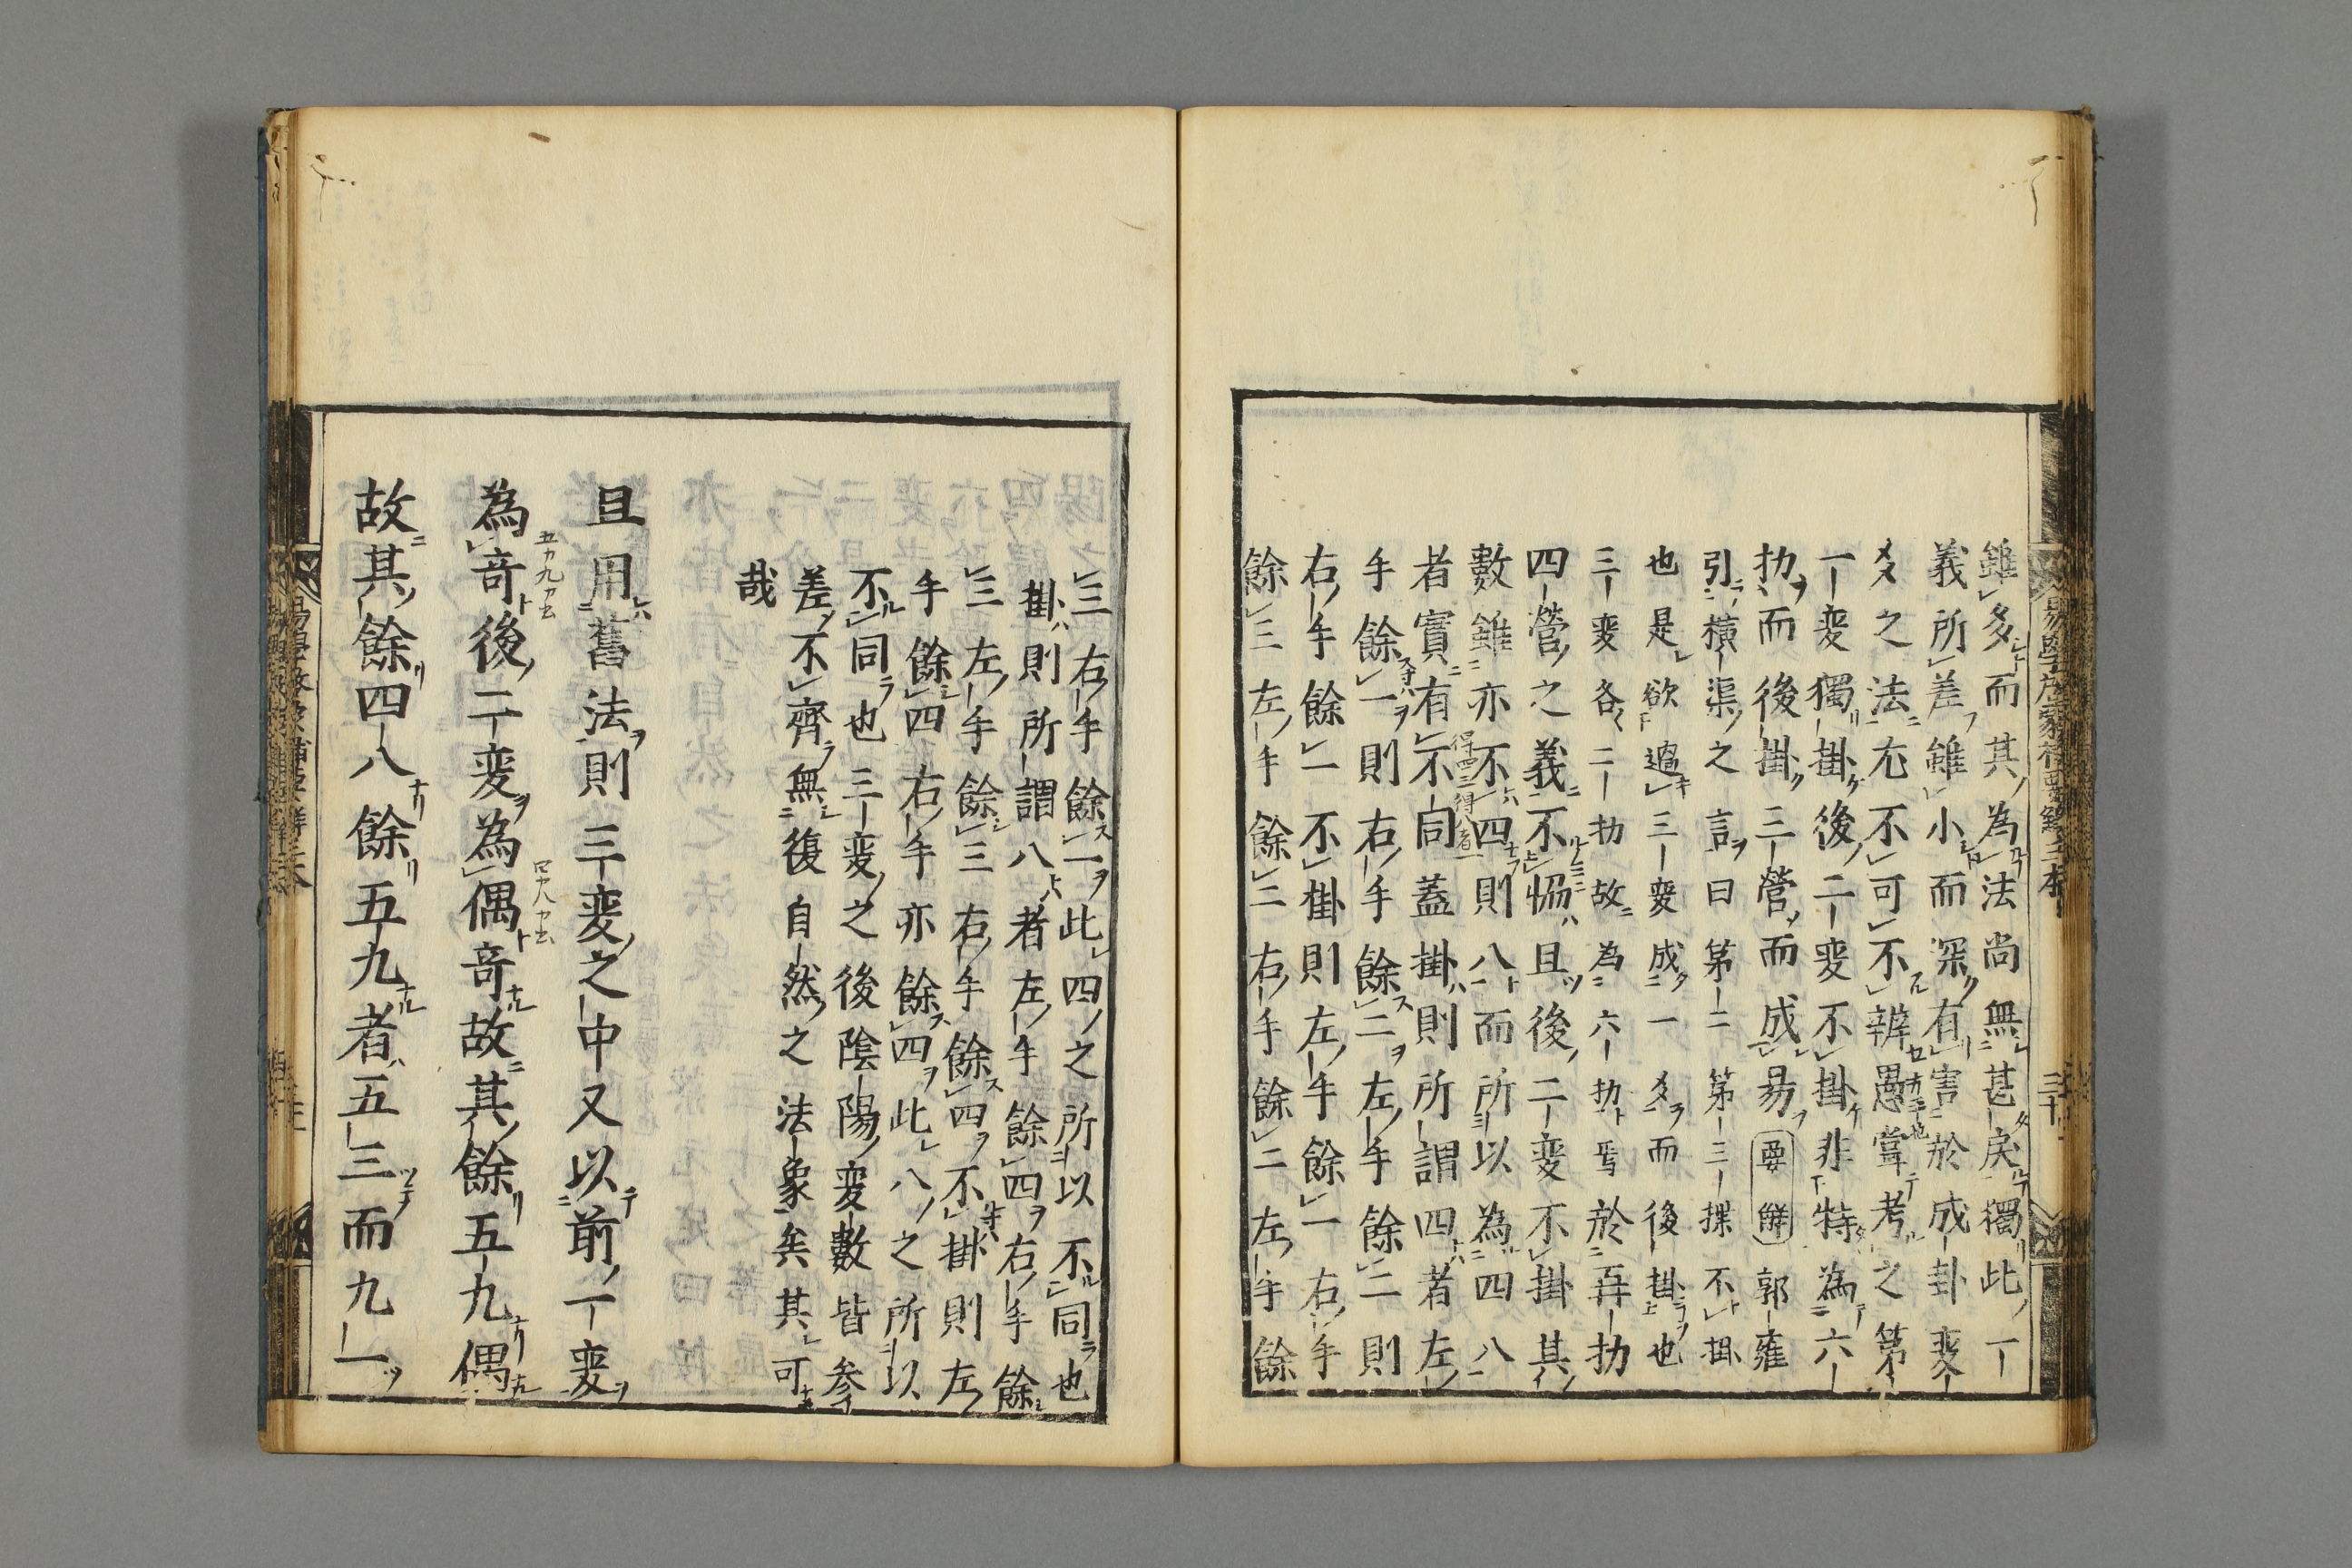 雖多而其為法尚無甚戾獨此一
義所差雖小而深有害於成卦変
爻之法尤不可不辨愚嘗考之第
一変獨掛後二変不掛非特為六
扐而後掛三營而成易要解郭雍
引橫渠之言曰第二第三揲不掛
也是欲過三変成一爻而後掛也
三変各二扐故為六扐焉於再扐
四營之義不恊且後二変不掛其
數雖亦不四則八而所以為四八
者實有不同蓋掛則所謂四者左
手餘一則右手餘二左手餘二則
右手餘一不掛則左手餘一右手
餘三左手餘二右手餘二左手餘
三右手餘一此四之所以不同也
掛則所謂八者左手餘四右手餘
三左手餘三右手餘四不掛則左
手餘四右手亦餘四此八之所以
不同也三変之後陰陽変數皆參
差不齊無復自然之法象矣其可
哉
且用舊法則三変之中又以前一変
為奇後二変為偶奇故其餘五九偶
故其餘四八餘五九者五三而九一